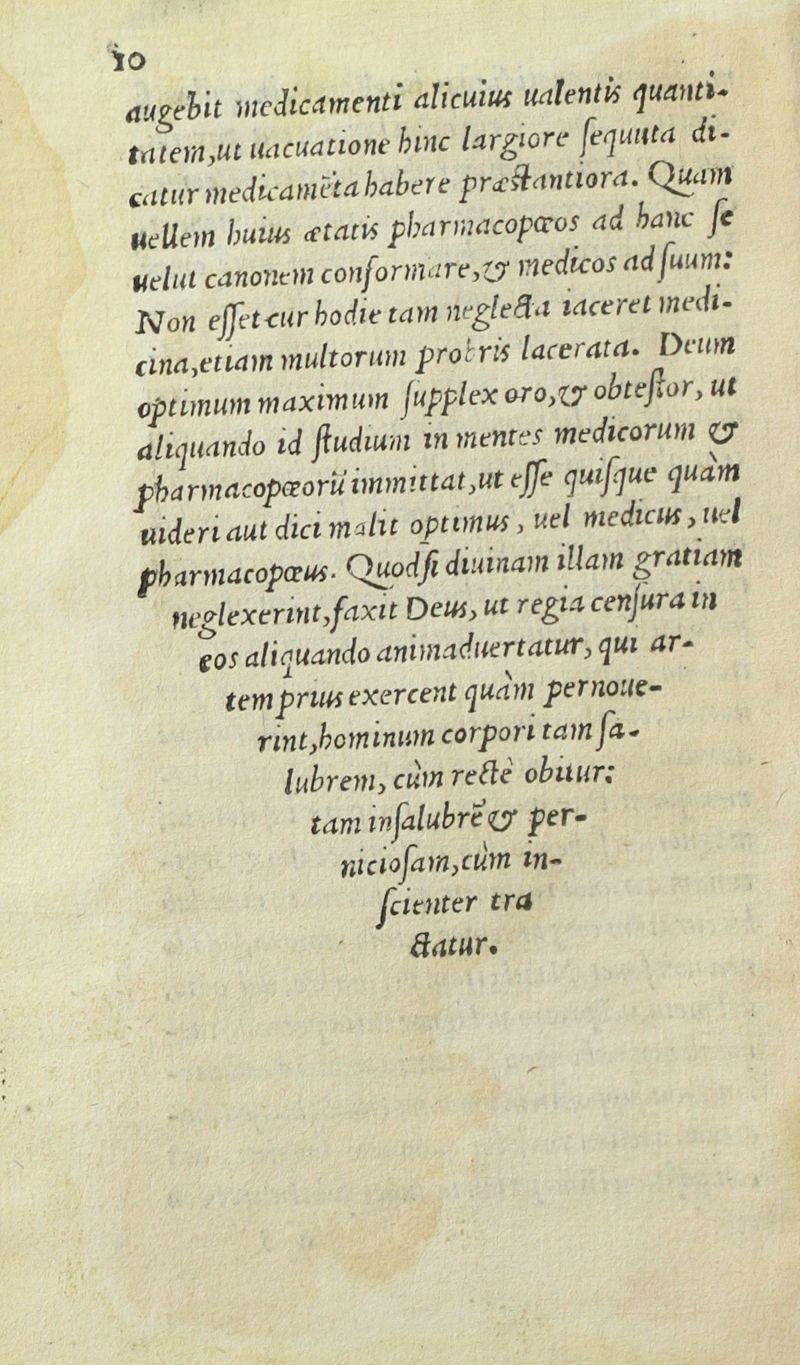 10
augebit medicamenti alicuius ualentis quanti-
tatem,ut uacuatione hinc largiore ſequuta di-
catur medicamẽta habere præſtantiora. Quam
uellem huius ætatis pharmacopœos ad hanc ſe
uelut canonem conformare,& medicos ad ſuum:
Non eſſet cur hodie tam neglecta iaceret medi-
cina,etiam multorum probris lacerata. Deum
optimum maximum ſupplex oro,& obteſtor, ut
aliquando id ſtudium in mentes medicorum &
pharmacopœorũ immittat,ut eſſe quiſque quàm
uideri aut dici malit optimus, uel medicus, uel
pharmacopœus. Quodſi diuinam illam gratiam
neglexerint,faxit Deus, ut regia cenſura in
eos aliquando animaduertatur, qui ar-
tem prius exercent quàm pernoue-
rint,hominum corpori tam ſa-
lubrem, cùm rectè obitur:
tam inſalubrẽ & per-
nicioſam,cùm in-
ſcienter tra
ctatur.